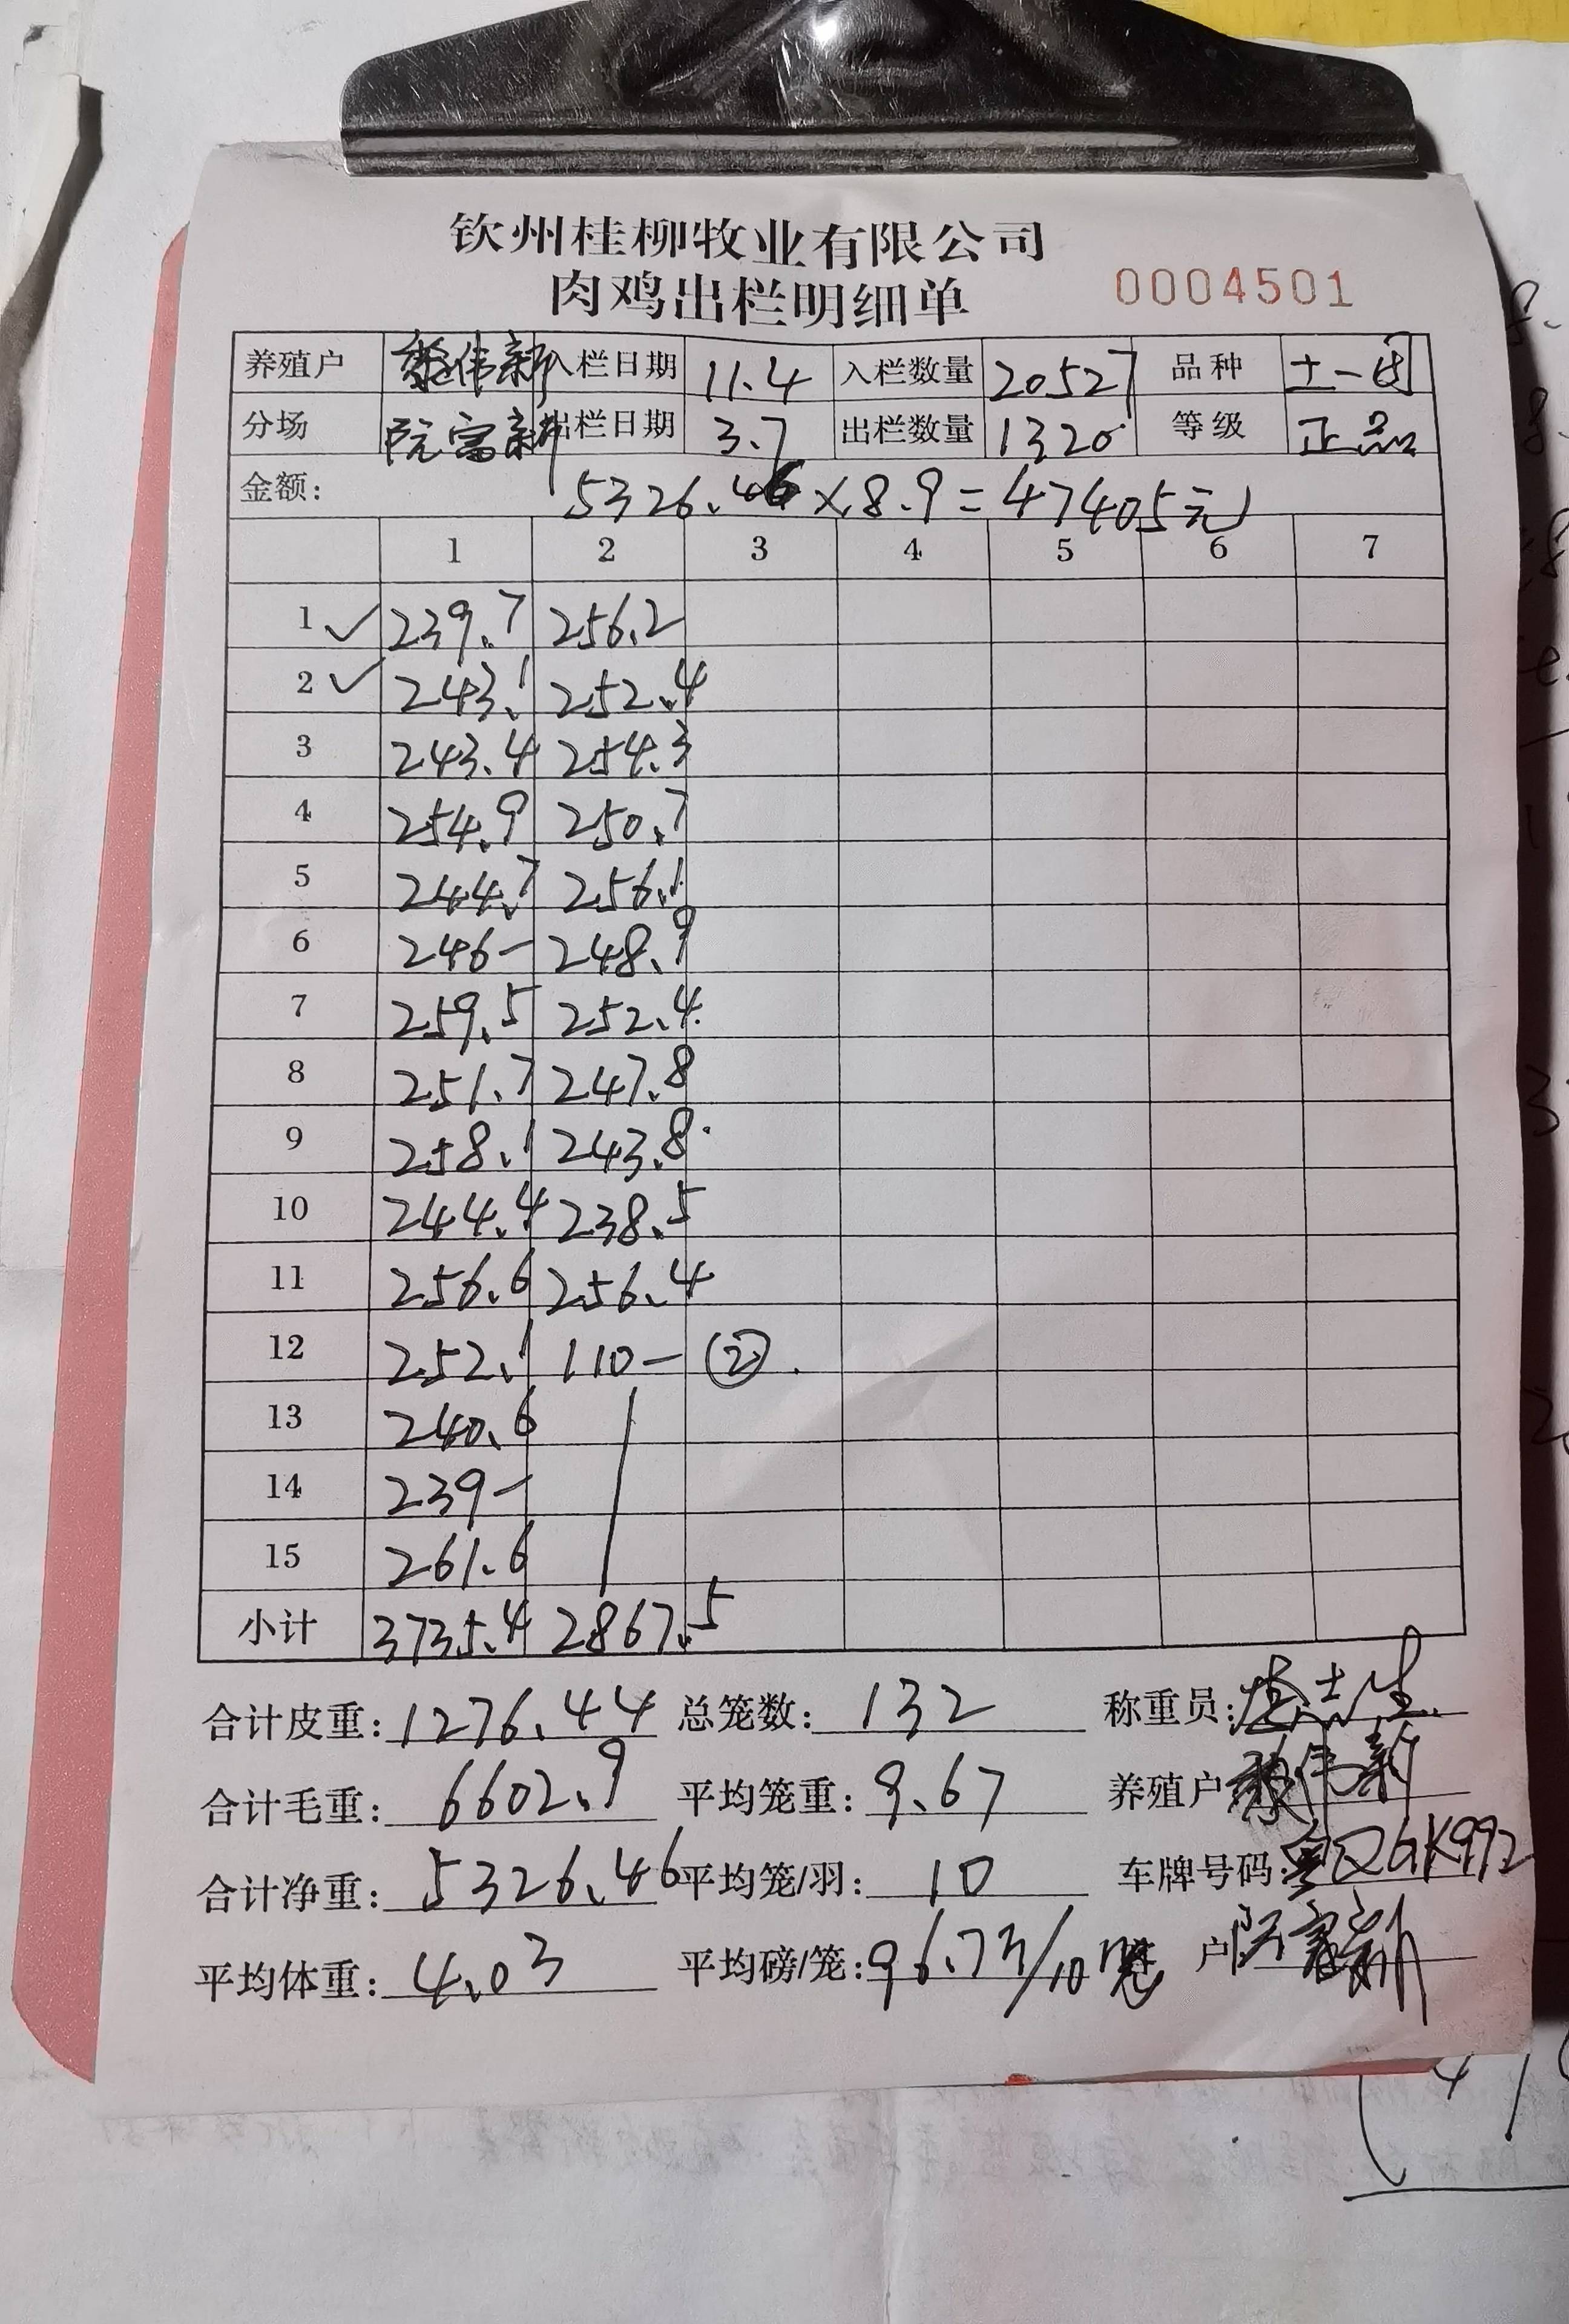 钦州桂柳牧业有限公司
肉鸡出栏明细单 0004501
养殖户 伟新 入栏日期 11.4 入栏数量 20527 品种 土一
分场 阮富新 出栏日期 3.7 出栏数量 1320 等级 正品
金额: 5326.46×8.9=47405元
1 2 3 4 5 6 7
1 ✓ 239.7 256.2
2 ✓ 243.1 252.4
3 243.4 254.3
4 254.9 250.7
5 244.7 256.1
6 246- 248.9
7 259.5 252.4
8 251.7 247.8
9 258.1 243.8
10 244.4 238.5
11 256.6 256.4
12 252.1 110- ②
13 240.6
14 239-
15 261.6
小计 3735.4 2867.5
合计皮重: 1276.44 总笼数: 132 称重员:
合计毛重: 6602.9 平均笼重: 9.67 养殖户 伟新
合计净重: 5326.46 平均笼/羽: 10 车牌号码: 粤QGK992
平均体重: 4.03 平均磅/笼: 96.73/10 户 阮富新